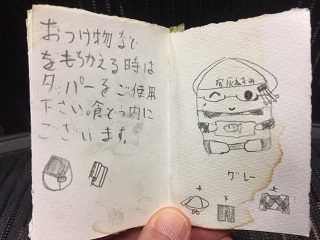 おつけ物など
をもちかえる時は
タッパーをご使用
下さい。食どう内に
ございます。
グレー
上
下